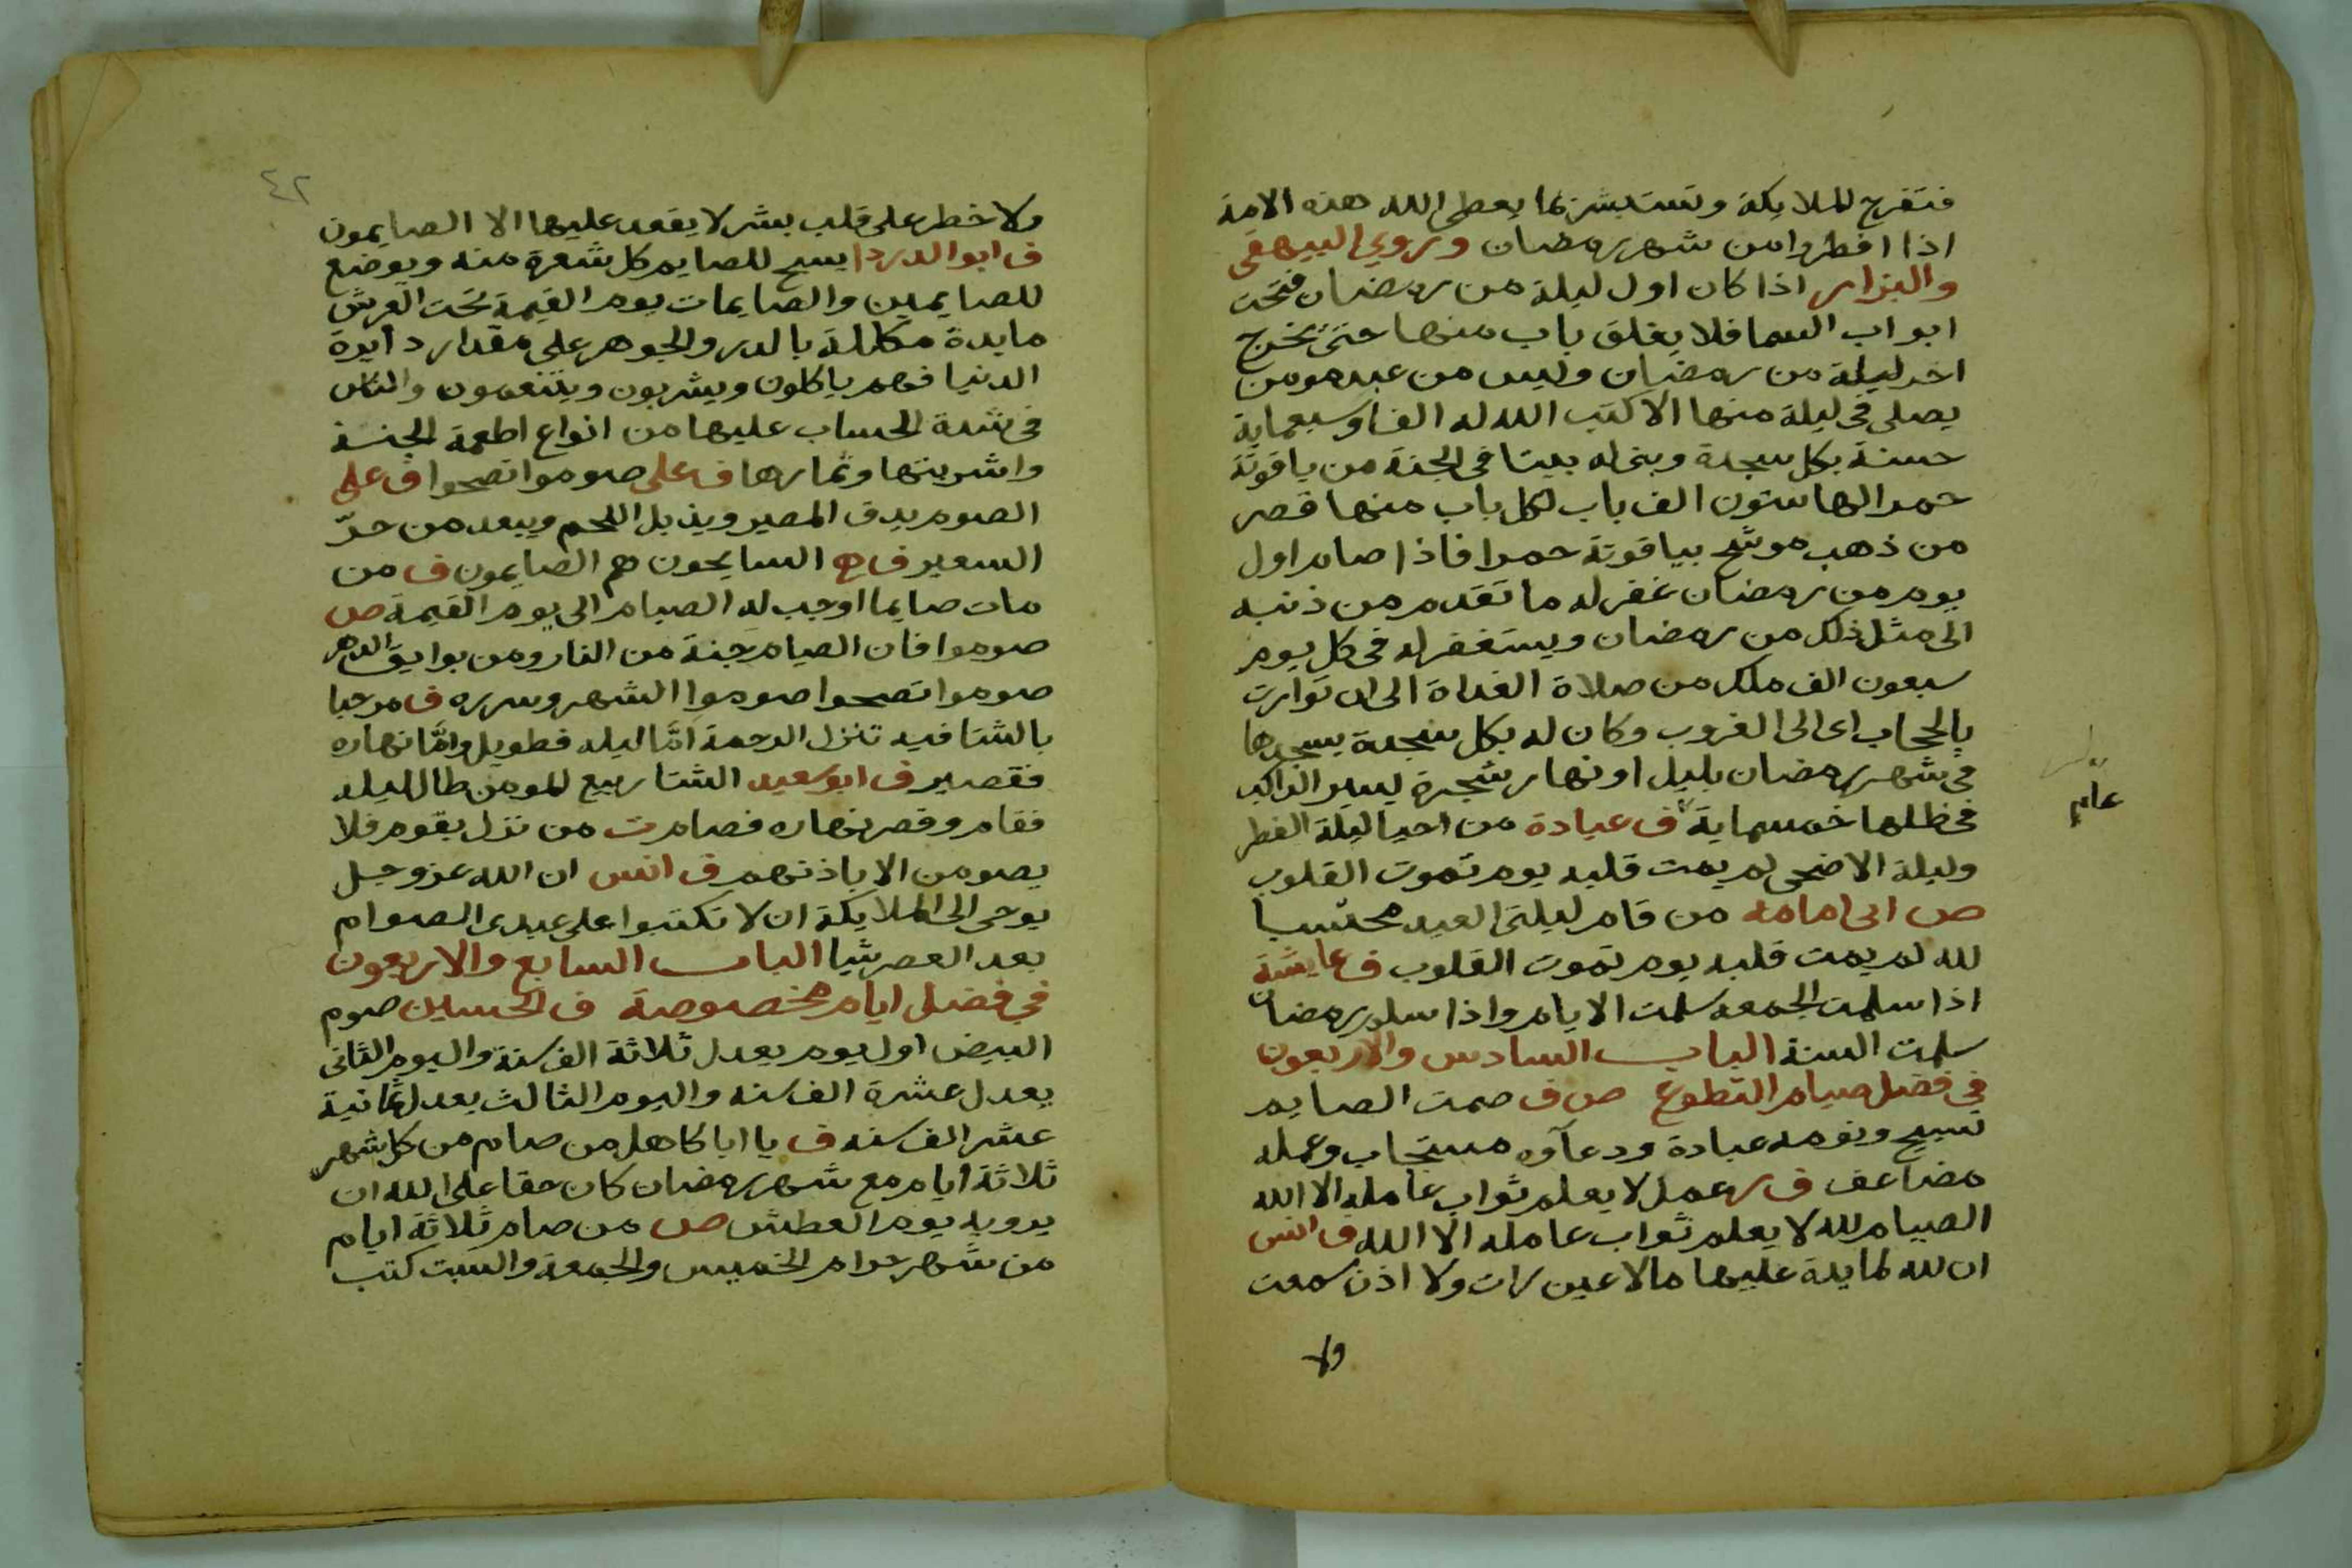 فتفرح الملايكة وتستبشر بما يعطى الله هذه الامة
اذا افطروا من شهر رمضان وروي البيهقى
والبزار اذا كان اول ليلة من رمضان فتحت
ابواب السما فلا يغلق باب منها حتى تخرج
اخر ليلة من رمضان وليس من عبد مومن
يصلى فى ليلة منها الا كتب الله له الفا وسبعماية
حسنة بكل سجدة وبنى له بيتا فى الجنة من ياقوتة
حمرا لها ستون الف باب لكل باب منها قصر
من ذهب موشح بياقوتة حمرا فاذا صام اول
يوم من رمضان غفر له ما تقدم من ذنبه
الى مثل ذلك من رمضان ويستغفر له فى كل يوم
سبعون الف ملك من صلاة الغداة الى ان توارت
بالحجاب اى الى الغروب وكان له بكل سجدة يسجدها
فى شهر رمضان بليل او نهار شجرة يسير الراكب
فى ظلها خمسماية ف عبادة من احيا ليلة الفطر
عام
وليلة الاضحى لم يمت قلبه يوم تموت القلوب
ص ابى امامه من قام ليلتى العيد محتسبا
لله لم يمت قلبه يوم تموت القلوب ف عايشة
اذا سلمت الجمعه سلمت الايام واذا سلم رمضان
سلمت السنة الباب السادس والاربعون
في فضل صيام التطوع ص ف صمت الصايم
تسبيح ونومه عبادة ودعآوه مستجاب وعمله
مضاعف ف ر عمل لا يعلم ثواب عامله الا الله
الصيام لله لا يعلم ثواب عامله الا الله ف انس
ان لله لمايدة عليها ما لا عين رات ولا اذن سمعت
ولا
٤٢
ولا خطر على قلب بشر لا يقعد عليها الا الصايمون
ف ابو الدردا يسبح للصايم كل شعرة منه ويوضع
للصايمين والصايمات يوم القيمة تحت العرش
مايدة مكللة بالدر والجوهر على مقدار دايرة
الدنيا فهم ياكلون ويشربون ويتنعمون والناس
فى شدة الحساب عليها من انواع اطعمة الجنة
واشربتها وثمارها ف على صوموا تصحوا ف على
الصوم يدق المصير ويذبل اللحم ويبعد من حرّ
السعير ف ه السايحون هم الصايمون ف من
مات صايما اوجب له الصيام الى يوم القيمة ص
صوموا فان الصيام جنة من النار ومن بوايق الدهر
صوموا تصحوا صوموا الشهر وسرره ف مرحبا
بالشتا فيه تنزل الرحمة امّا ليله فطويل وامّا نهاره
فقصير ف ابو سعيد الشتا ربيع المومن طال ليله
فقام وقصر نهاره فصام ت من نزل بقوم فلا
يصومن الا باذنهم ف انس ان الله عز وجل
يوحى الى الملايكة ان لا تكتبوا على عبدى الصوام
بعد العصر شيا الباب السابع والاربعون
في فضل ايام مخصوصة ف الحسين صوم
البيض اول يوم يعدل ثلاثة الف سنة واليوم الثانى
يعدل عشرة الف سنه واليوم الثالث يعدل ثمانية
عشر الف سنه ف يا ابا كاهل من صام من كل شهر
ثلاثة ايام مع شهر رمضان كان حقا على الله ان
يرويه يوم العطش ص من صام ثلاثة ايام
من شهر حرام الخميس والجمعة والسبت كتب